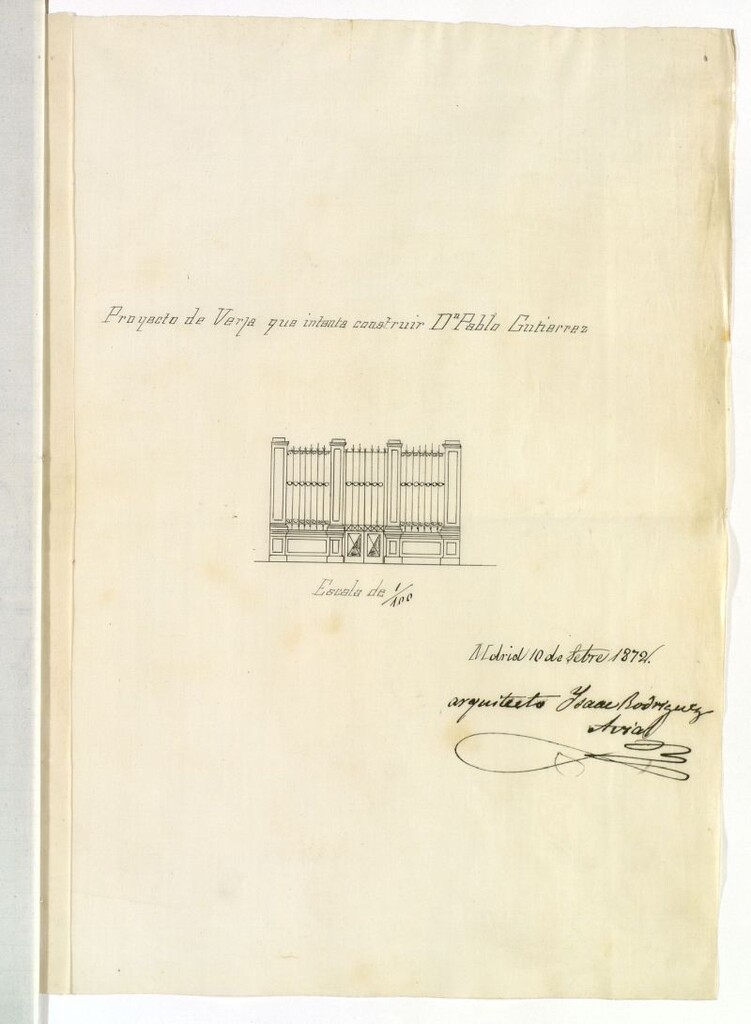 Proyecto de Verja que intenta construir Dⁿ Pablo Gutierrez
Escala de 1/100
Madrid 10 de Setre 1872.
arquitecto Ysaac Rodriguez
Avial